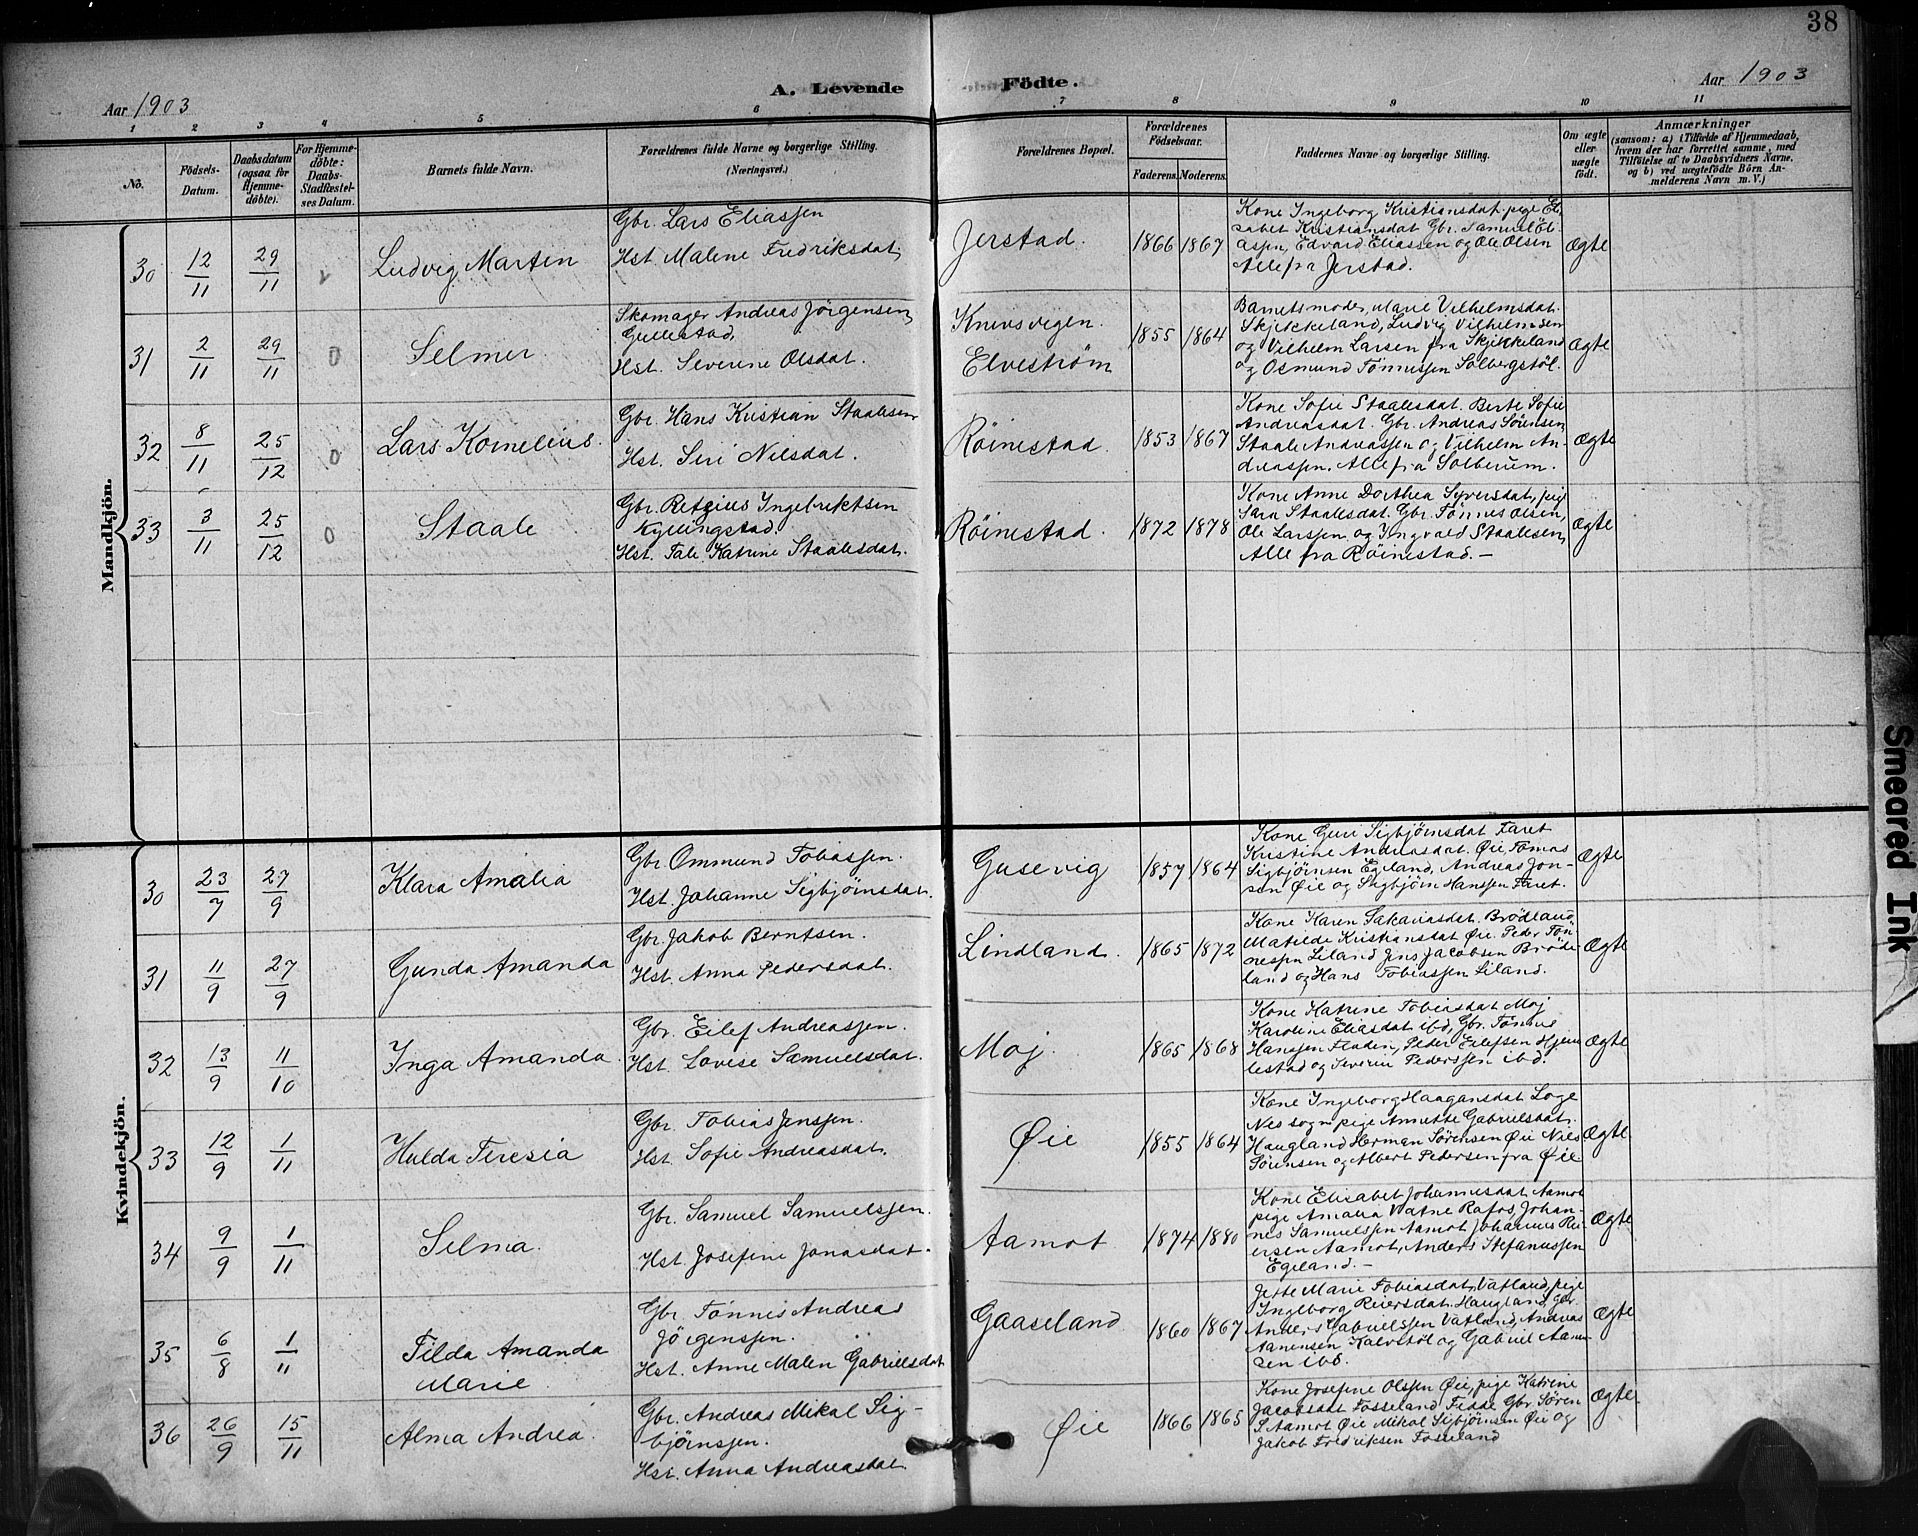 38
Aar 1903
A. Levende Födte.
Aar 1903
1 2 3 4 5 6 7 8 9 10 11
No.
Födsels-
Datum.
Daabsdatum
(ogsaa for
Hjemme-
döbte).
For Hjemme-
döbte:
Daabs-
Stadfæstel-
ses Datum.
Barnets fulde Navn.
Forældrenes fulde Navne og borgerlige Stilling.
(Næringsvei.)
Forældrenes Bopæl.
Forældrenes
Födselsaar.
Faderens. Moderens.
Faddernes Navne og borgerlige Stilling.
Om ægte
eller
uægte
födt.
Anmærkninger
(saasom: a) i Tilfælde af Hjemmedaab,
hvem der har forrettet samme, med
Tilföielse af to Daabsvidners Navne,
og b) ved uægtefödte Börn An-
melderens Navn m. V.)
Mandkjön.
30 12/11 29/11 Ludvig Martin
Gbr. Lars Eliassen
Hst. Malene Fredriksdat.
Jerstad. 1866 1867
Kone Ingeborg Kristiansdat pige El-
sabet Kristiansdat Gbr. Samuel El-
iassen, Edvard Eliassen og Ole Olsen
Alle fra Jerstad.
Ægte
31 2/11 29/11 0 Selmer
Skomager Andreas Jörgensen
Gullestad,
Hst. Severine Olsdat.
Knivsvigen.
Elveström
1855 1864
Barnets moder, Marie Vilhelmsdat.
Skjekkeland, Ludvig Vilhelmsen
og Vilhelm Larsen fra Skjekkeland
og Osmund Tönnessen Solbergstöl.
Ægte
32 8/11 25/12 0 Lars Kornelius.
Gbr. Hans Kristian Staalesen
Hst. Siri Nilsdat.
Röinestad. 1853 1867
Kone Sofie Staalesdat. Berte Sofie
Andreasdat. Gbr. Andreas Sörensen,
Staale Andreassen og Vilhelm An-
dreassen, Alle fra Solberum.
Ægte
33 3/11 25/12 0 Staale
Gbr. Retzius Ingebrektsen
Kyllingstad.
Hst. Tale Katrine Staalesdat.
Röinestad. 1872 1878
Kone Anne Dorthea Syversdat, pige
Sara Staalesdat. Gbr. Tönnes Olsen,
Ole Larssen og Ingvald Staalesen,
Alle fra Röinestad. –
Ægte
Kvindekjön.
30 23/7 27/9 Klara Amalia
Gbr. Ommund Tobiassen.
Hst. Johanne Sigbjörnsdat.
Gusevig 1857 1864
Kone Guri Sigbjörnsdat Faret
Kristine Andreasdat. Öie Tomas
Sigbjörnsen Egeland, Andreas Jon-
sen Øie og Sigbjörn Hanssen Faret.
Ægte
31 11/9 27/9 Gunda Amanda
Gbr. Jakob Berntsen.
Hst. Anna Pedersdat.
Lindland. 1865 1872
Kone Karen Sakariasdat. Brödland
Matilde Kristiansdat Øie. Peder Tön-
nessen Liland Jens Jacobsen Bröde-
land og Hans Tobiassen Liland.
Ægte
32 13/9 11/10 Inga Amanda.
Gbr. Eilef Andreassen.
Hst. Lovise Samuelsdat.
Moj. 1865 1868
Kone Katrine Tobiasdat Moj
Karoline Eliasdat ibd, Gbr. Tönnes
Hanssen Fladen, Peder Eilefsen Hjem
lestad og Severin Pederssen ibd.
Ægte
33 12/9 1/11 Hulda Teresia
Gbr. Tobias Jenssen.
Hst. Sofie Andreasdat.
Øie 1855 1864
Kone Ingeborg Haagansdat Loge
Nes sogn pige Annette Gabrielsdat.
Haugland Herman Sörensen Øie Nils
Sörensen og Albert Pedersen fra Øie
Ægte
34 9/9 1/11 Selma.
Gbr. Samuel Samuelssen.
Hst. Josefine Jonasdat.
Aamot 1874 1880
Kone Elisabet Johannesdat. Aamot
pige Amalia Vatne Rafos, Johan-
nes Samuelssen Aamot, Johannes Rei-
ersen Aamot, Anders Stefanussen
Egeland. –
Ægte
35 6/8 1/11 Tilda Amanda
Marie
Gbr. Tönnes Andreas
Jörgenssen.
Hst. Anne Malen Gabrielsdat
Gaaseland 1860 1867
Jerte Marie Tobiasdat, Vatland, pige
Ingeborg Reiersdat. Haugland, Gbr.
Anders Gabrielssen Vatland, Andreas
Aanensen Kalvstöl og Gabriel Aanen-
sen ibd.
Ægte
36 26/9 15/11 Alma Andrea.
Gbr. Andreas Mikal Sig-
björnssen.
Hst. Anna Andreasdat.
Øie 1866 1865
Kone Josefine Olssen Øie, pige Katrine
Jacobsdat Fosseland Fidde Gbr. Sören
S. Aamot Øie Mikal Sigbjörnsen Øie og
Jakob Fredriksen Fosseland
Ægte
Smeared Ink